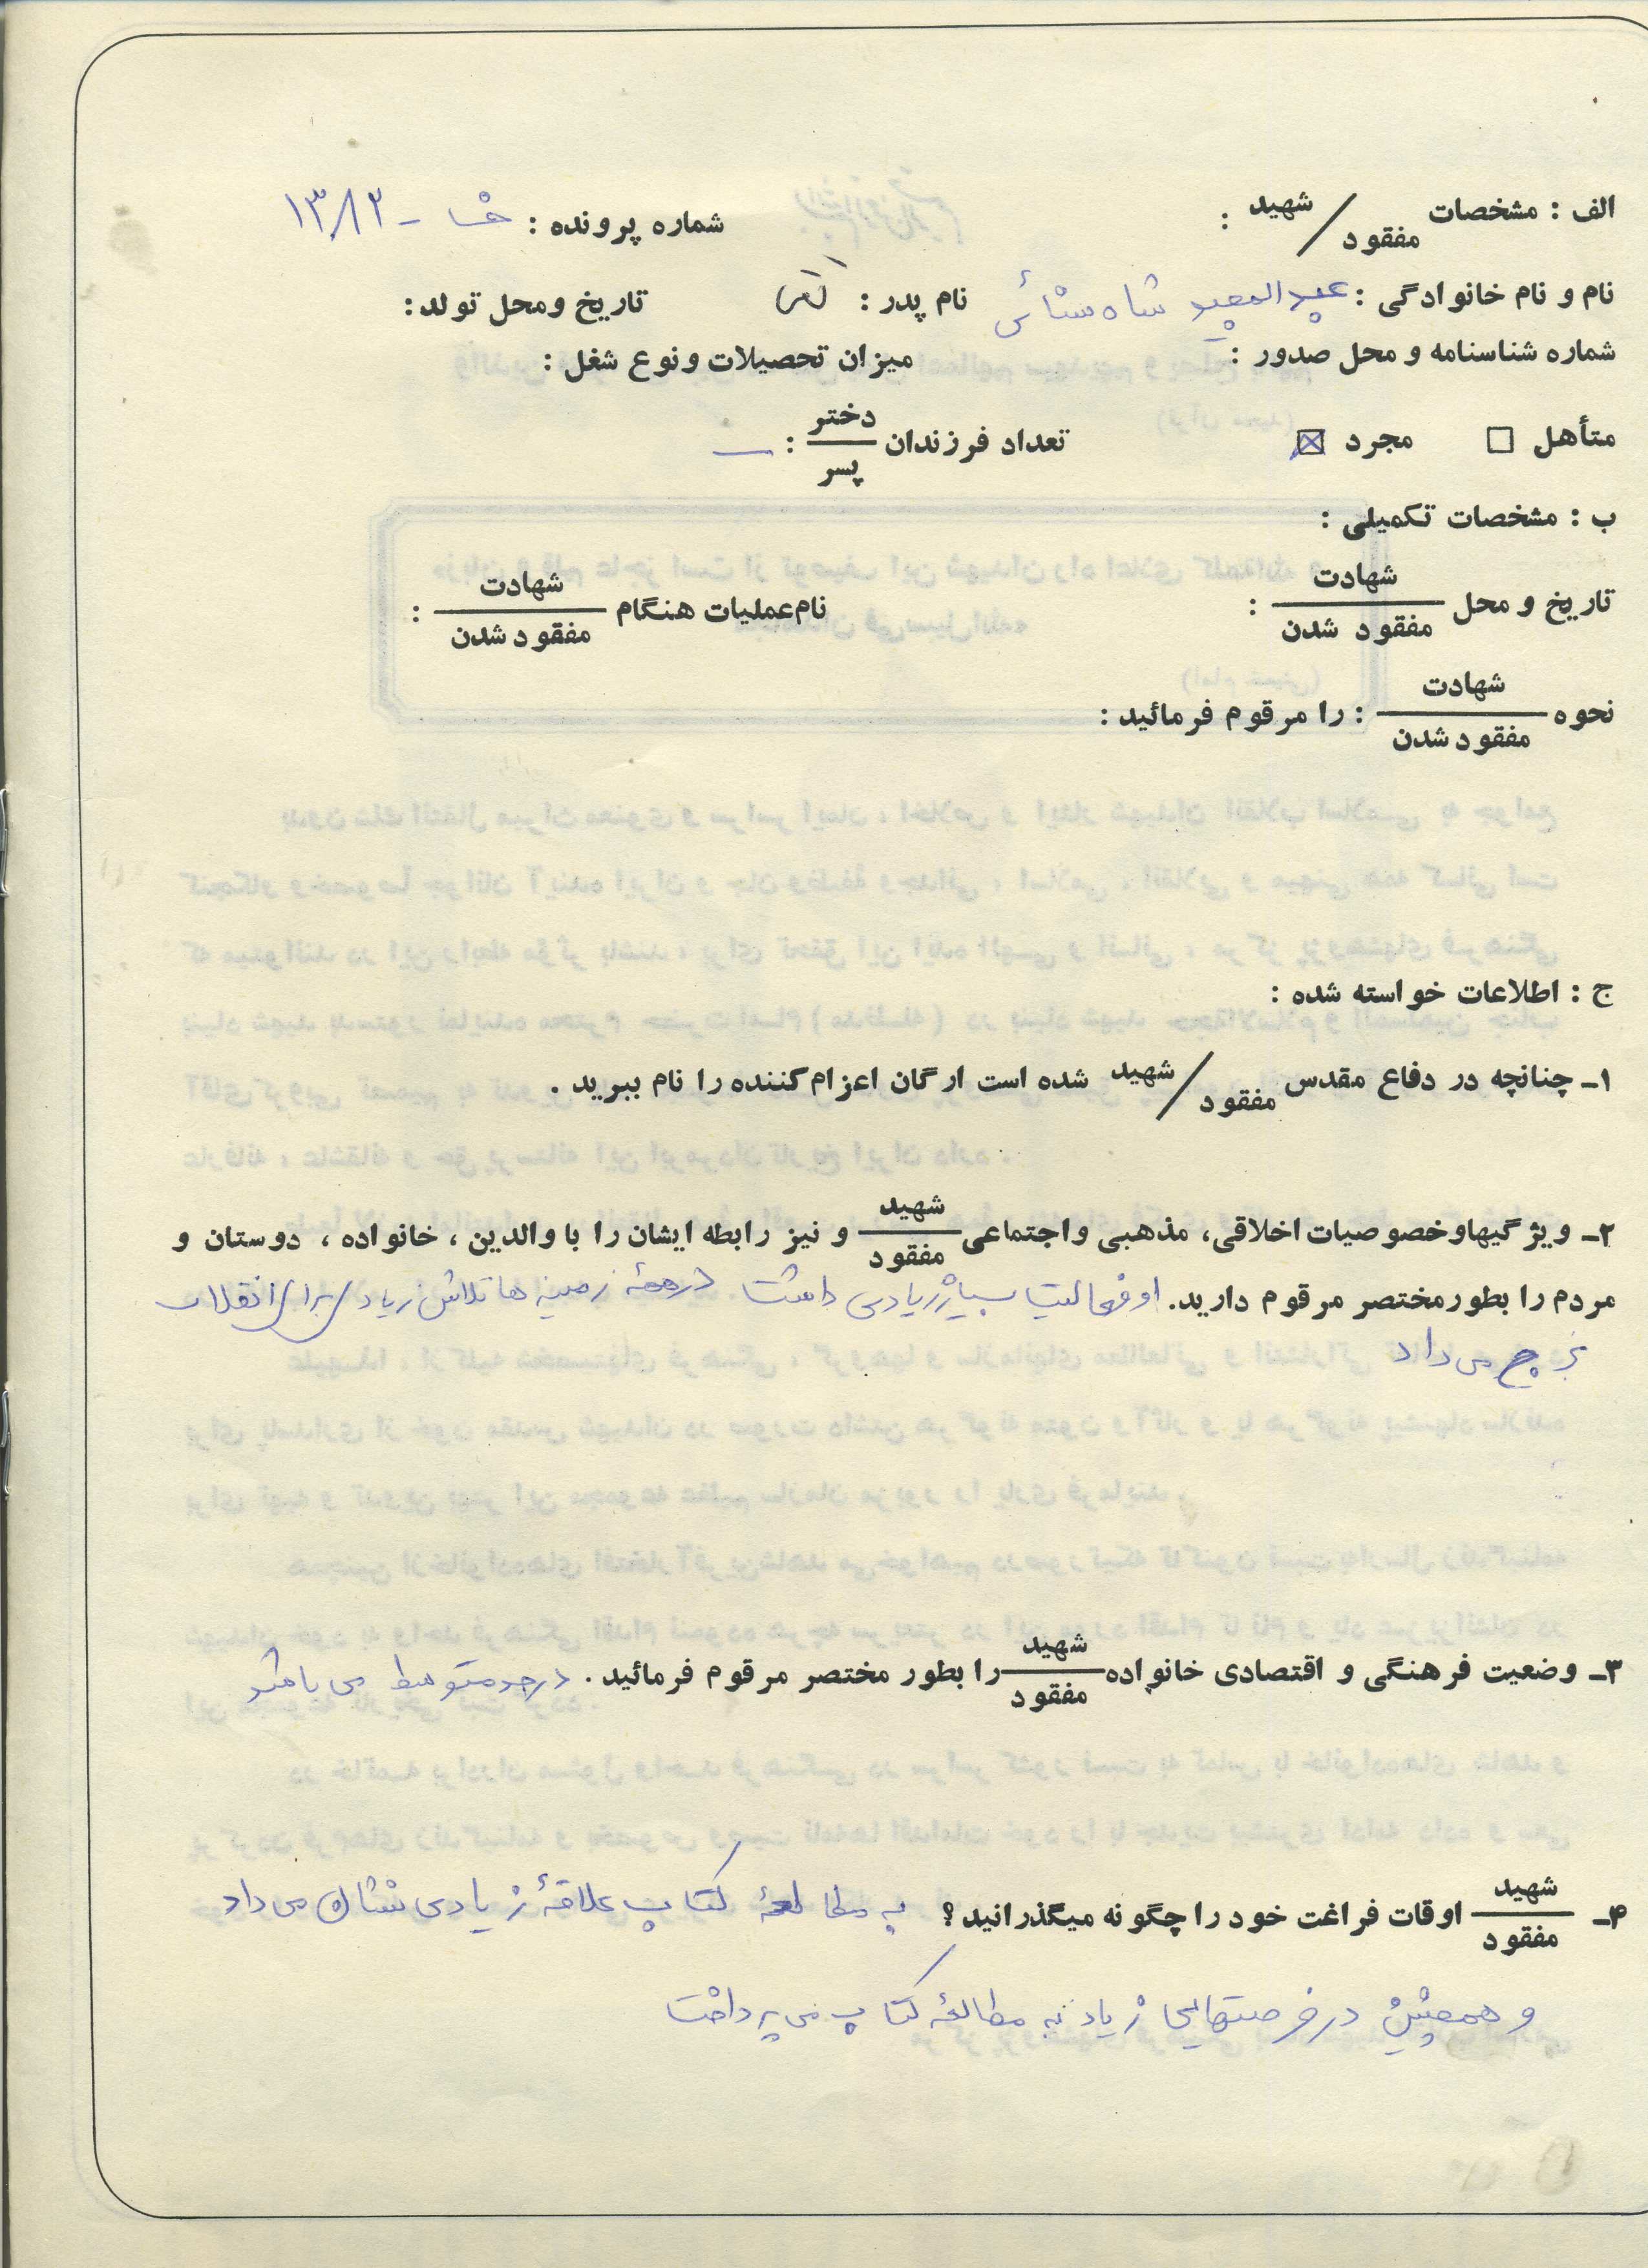 الف : مشخصات شهید / مفقود : شماره پرونده : خا - ۱۳۸۲
نام و نام خانوادگی : عبدالمعید شاه سنائی نام پدر : تاریخ ومحل تولد:
شماره شناسنامه و محل صدور : میزان تحصیلات ونوع شغل :
متأهل □ مجرد ☒ تعداد فرزندان دختر / پسر : —
ب : مشخصات تکمیلی :
تاریخ و محل شهادت / مفقود شدن : نام‌عملیات هنگام شهادت / مفقود شدن :
نحوه شهادت / مفقود شدن : را مرقوم فرمائید :
ج : اطلاعات خواسته شده :
۱- چنانچه در دفاع مقدس شهید / مفقود شده است ارگان اعزام‌کننده را نام ببرید .
۲- ویژگیهاوخصوصیات اخلاقی، مذهبی واجتماعی شهید / مفقود و نیز رابطه ایشان را با والدین ، خانواده ، دوستان و
مردم را بطورمختصر مرقوم دارید. او فعالیت بسیار زیادی داشت در همهٔ زمینه ها تلاش زیاد برای انقلاب
به خرج می داد
۳- وضعیت فرهنگی و اقتصادی خانواده شهید / مفقود را بطور مختصر مرقوم فرمائید . در حد متوسط می باشد
۴- شهید / مفقود اوقات فراغت خود را چگونه میگذرانید ؟ به مطالعهٔ کتاب علاقهٔ زیادی نشان می داد
و همچنین در فرصتهایی زیاد به مطالعهٔ کتاب می پرداخت